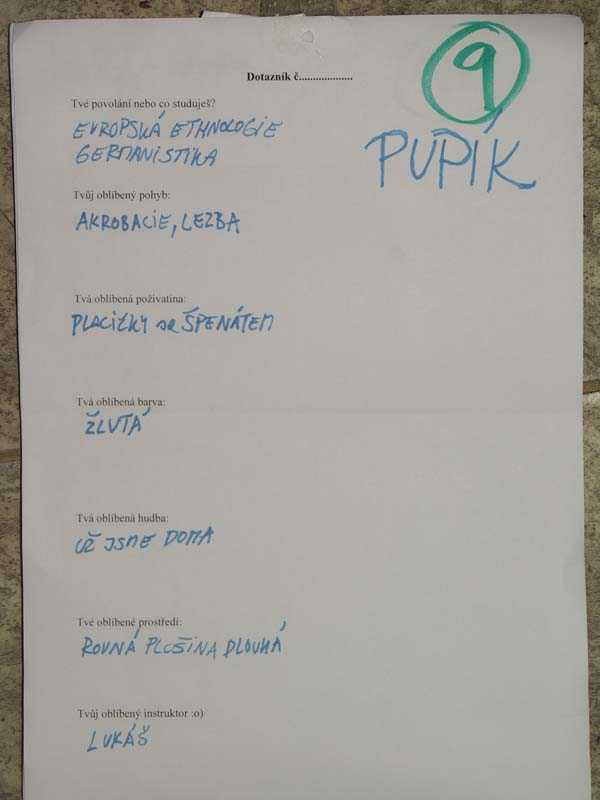 9
Dotazník č...................
PUPÍK
Tvé povolání nebo co studuješ?
EVROPSKÁ ETHNOLOGIE
GERMANISTIKA
Tvůj oblíbený pohyb:
AKROBACIE, LEZBA
Tvá oblíbená poživatina:
PLACIČKY se ŠPENÁTEM
Tvá oblíbená barva:
ŽLUTÁ
Tvá oblíbená hudba:
UŽ JSME DOMA
Tvé oblíbené prostředí:
ROVNÁ PLOŠINA DLOUHÁ
Tvůj oblíbený instruktor :o)
LUKÁŠ